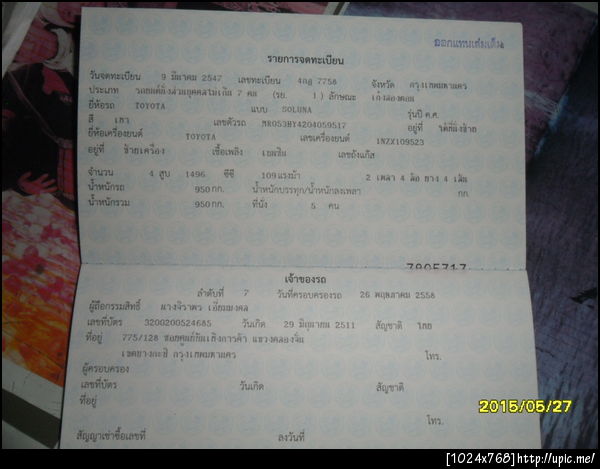 ออกแทนเล่มเต็ม
รายการจดทะเบียน
วันจดทะเบียน 9 มีนาคม 2547 เลขทะเบียน 7758 จังหวัด กรุงเทพมหานคร
ประเภท รถยนต์นั่งส่วนบุคคลไม่เกิน 7 คน (รย. 1) ลักษณะ เก๋งสองตอน
ยี่ห้อรถ TOYOTA แบบ SOLUNA รุ่นปี ค.ศ.
สี เทา เลขตัวรถ MR053HY4204059517 อยู่ที่
ยี่ห้อเครื่องยนต์ TOYOTA เลขเครื่องยนต์ 1NZX109523
อยู่ที่ ซ้ายเครื่อง เชื้อเพลิง เบนซิน เลขถังแก๊ส
จำนวน 4 สูบ 1496 ซีซี 109 แรงม้า 2 เพลา 4 ล้อ ยาง 4 เส้น
น้ำหนักรถ 950 กก. น้ำหนักบรรทุก/น้ำหนักลงเพลา กก.
น้ำหนักรวม 950 กก. ที่นั่ง 5 คน
เจ้าของรถ
ลำดับที่ 7 วันที่ครอบครองรถ 26 พฤษภาคม 2558
ผู้ถือกรรมสิทธิ์ นางจิราพร เอี่ยมมงคล
เลขที่บัตร 3200200524685 วันเกิด 29 มิถุนายน 2511 สัญชาติ ไทย
ที่อยู่ 775/128 แขวงคลองจั่น
เขตบางกะปิ กรุงเทพมหานคร โทร.
ผู้ครอบครอง
เลขที่บัตร วันเกิด สัญชาติ
ที่อยู่
โทร.
สัญญาเช่าซื้อเลขที่ ลงวันที่
2015/05/27
[1024x768]http://upic.me/